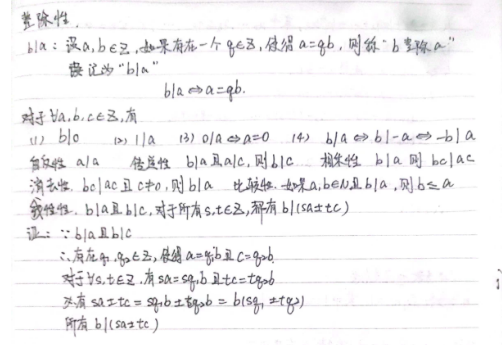 整除性.
b|a：设a,b∈Z,如果存在一个q∈Z,使得a=qb,则称"b整除a"
记为"b|a"
b|a⇔a=qb.
对于∀a,b,c∈Z,有
(1) b|0 (2) 1|a (3) 0|a⇔a=0 (4) b|a⇔b|-a⇔-b|a
自反性 a|a 传递性 b|a且a|c,则b|c 相乘性 b|a则bc|ac
消去性 bc|ac且c≠0,则b|a 比较性 如果a,b∈N且b|a,则b≤a
线性性. b|a且b|c,对于所有s,t∈Z,都有b|(sa±tc)
证：∵b|a且b|c
∴存在q₁,q₂∈Z,使得a=q₁b且c=q₂b
对于∀s,t∈Z,有sa=sq₁b且tc=tq₂b
又有sa±tc=sq₁b±tq₂b=b(sq₁±tq₂)
所有b|(sa±tc)